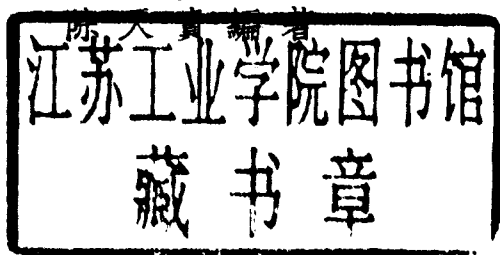 陈天賓編著
江苏工业学院图书馆
藏书章